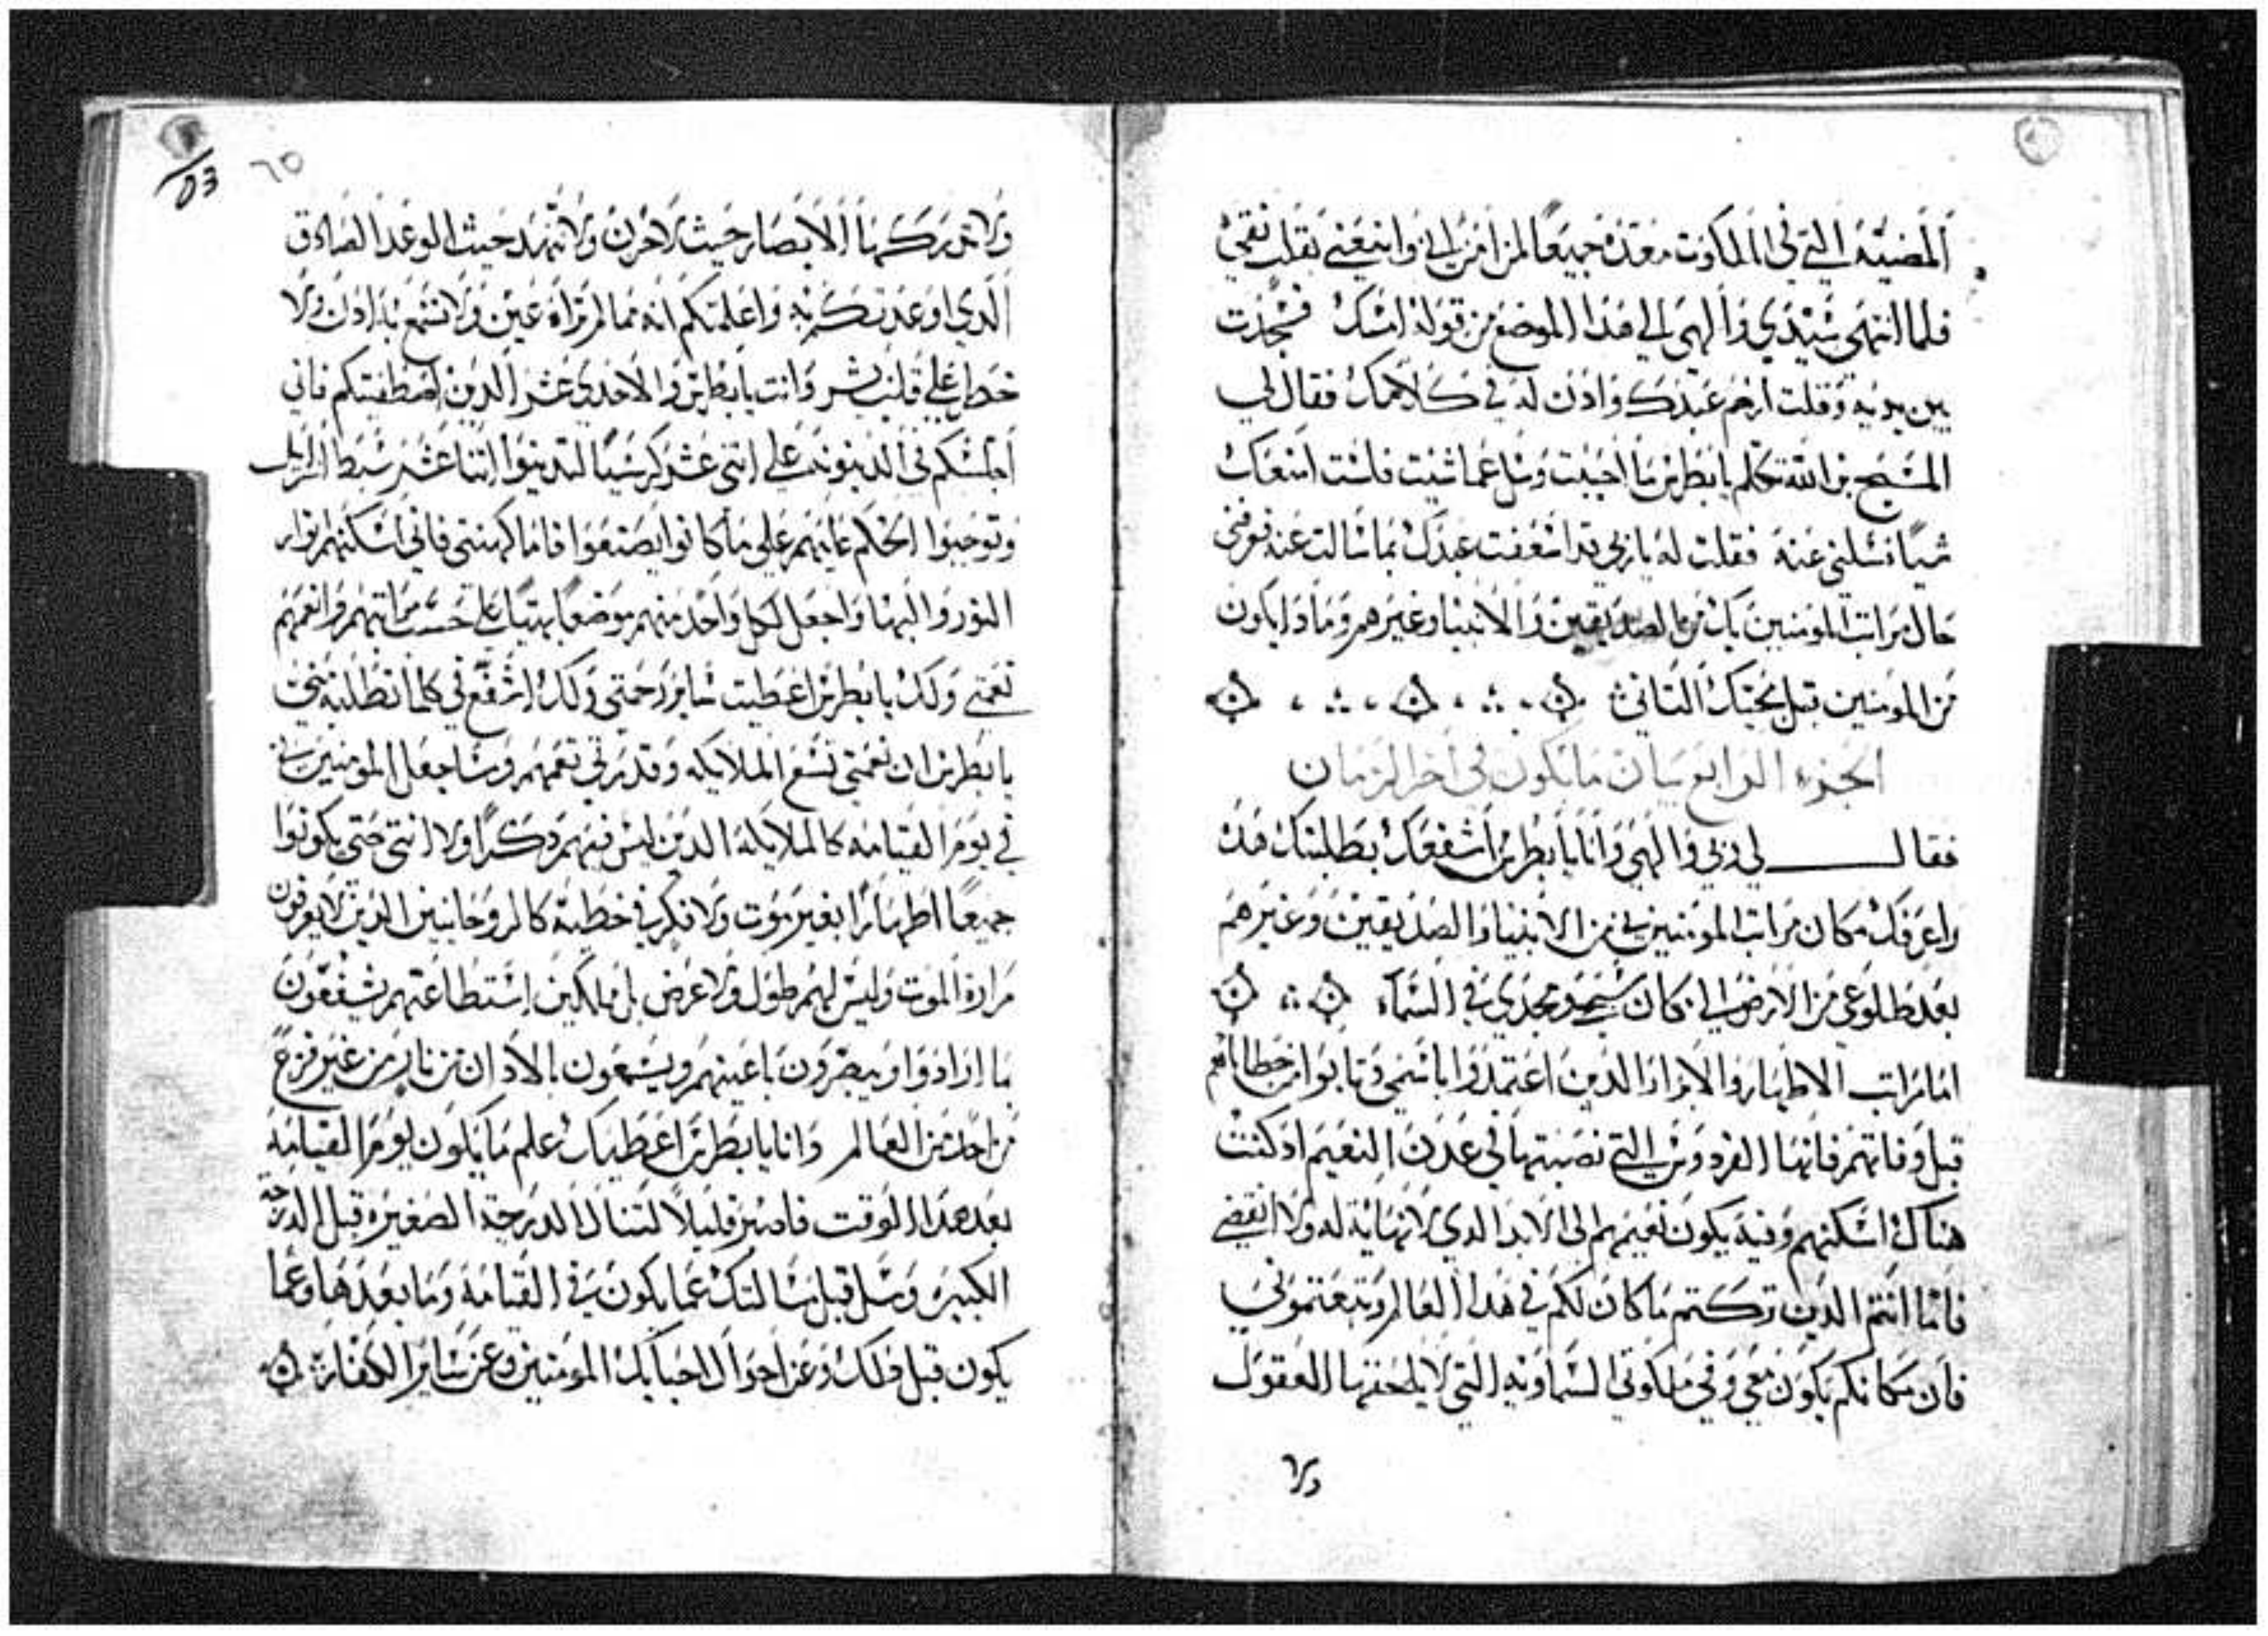 المضيه التي في الملكوت معده جميعا لمن امن بي واتبعني بقلب نقي
فلما انتهي سيدي والهي الي هذا الموضع من قوله امسك فسجدت
بين يديه وقلت ارحم عبدك واذن له في كلامك فقال لي
المسيح بن الله تكلم يا بطرس ما احببت وسل عما شيت فلست امنعك
شيا تسلني عنه فقلت له يا ربي قد اسعفت عبدك بما سالت عنه فعرفني
حال مراتب المومنين بك من الصديقين والانبيا وغيرهم وما ذا يكون
من المومنين قبل مجيك الثاني
الجزء الرابع بيان ما يكون في اخر الزمان
فقال لي ربي والهي وانا يا بطرس اشفعك بطلبتك هذه
واعرفك مكان مراتب المومنين بي من الانبيا والصديقين وغيرهم
بعد طلوعي من الارض الي مكان مجدي في السماء
اما مراتب الاطهار والابرار الذين اعتمدوا باسمي وتابوا من خطاياهم
قبل وفاتهم فانها الفردوس التي نصبتها في عدن النعيم اذ كنت
هناك اسكنهم وفيه يكون نعيمهم الى الابد الدي لا نهاية له ولا انقضي
فاما انتم الدين تركتم ما كان لكم في هدا العالم وتبعتموني
فان مكانكم يكون معي وفي ملكوتي السماويه التي لا يلحقها العقول
ولا
٦٥
ولا تدركها الابصار حيث لا حزن ولا تنهد حيث الوعد الصادق
الدي اوعدتكم به واعلمتكم انه مما لم تراه عين ولا تسمع به ادن ولا
خطر علي قلب بشر وانت يا بطرس والاحدي عشر الدين اصطفيتكم فاني
اجلسكم في الدينونه علي اتني عشر كرسيا لتدينوا اتنا عشر سبط اسراييل
وتوجبوا الحكم عليهم علي ما كانوا يصنعوا فاما كهنتي فاني اسكنهم انوار
النور والبها واجعل لكل واحد منهم موضعا بهيا علي حسب مراتبهم وانعمهم
نعمتي ولك يا بطرس اعطيت ساير رحمتي ولك اشفع في كلما تطلبه مني
يا بطرس ان نعمتي تسع الملايكه وقدرتي تعمهم وساجعل المومنين بي
في يوم القيامه كالملايكه الدين ليس فيهم دكرا ولا انتي حتي يكونوا
جميعا اطهارا بغير موت ولا فكر في خطية كالروحانيين الدين لا يعرفون
مرارة الموت وليس لهم طول ولا عرض بل ملكين استطاعتهم يشفعون
ما ارادوا ويبصرون باعينهم ويسمعون بالادان من غير فزع
من احد من العالم وانا يا بطرس اعطيك علم ما يكون يوم القيامه
بعد هدا الوقت فاصبر قليلا لتنال الدرجة الصغيره قبل الدرجة
الكبيره وسل قبل مسالتك عما يكون في القيامه وما بعدها وعما
يكون قبل دلك وعن احوال احبايك المومنين وعن ساير الكفار